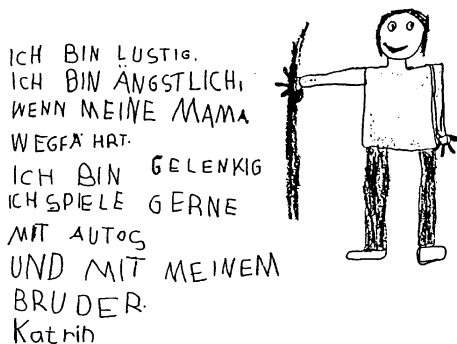 ICH BIN LUSTIG.
ICH BIN ÄNGSTLICH,
WENN MEINE MAMA
WEGFÄHRT.
ICH BIN GELENKIG
ICH SPIELE GERNE
MIT AUTOS
UND MIT MEINEM
BRUDER.
Katrin